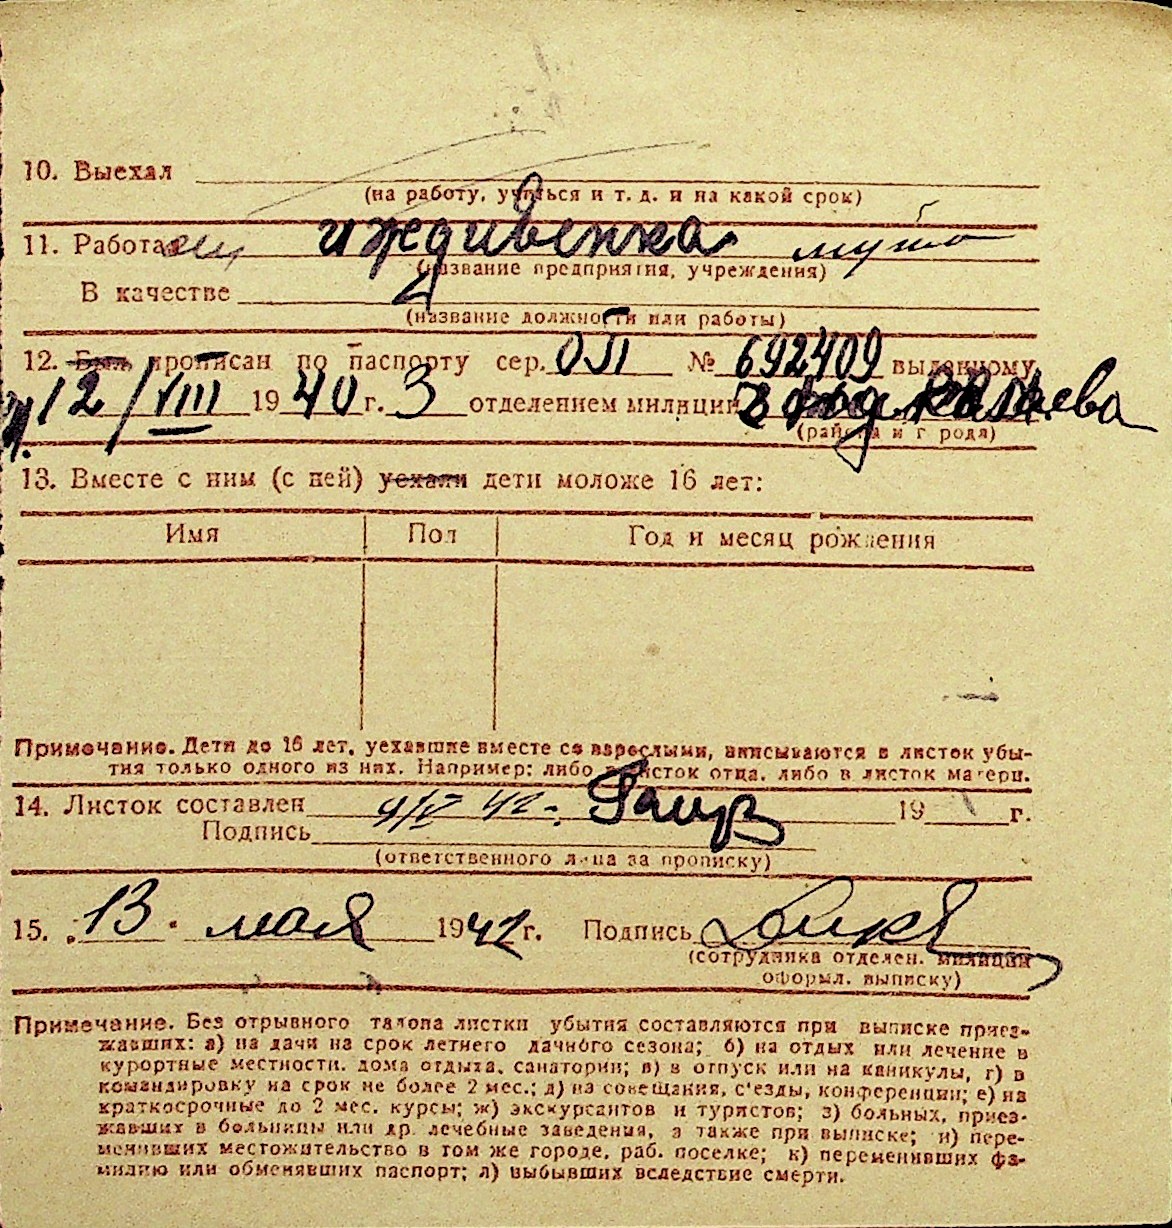 10. Выехал
(на работу, учиться и т. д. и на какой срок)
11. Работа иждивенка мужа
(название предприятия, учреждения)
В качестве
(название должности или работы)
12. Был прописан по паспорту сер. ОП № 692409 выданному
12/VIII 1940 г. 3 отделением милиции
(район и город)
13. Вместе с ним (с ней) уехали дети моложе 16 лет:
Имя Пол Год и месяц рождения
Примечание. Дети до 16 лет, уехавшие вместе со взрослыми, вписываются в листок убы-
тия только одного из них. Например: либо в листок отца, либо в листок матери.
14. Листок составлен 4/V 42 19 г.
Подпись
(ответственного лица за прописку)
15. 13 мая 1942 г. Подпись
(сотрудника отделен. милиции
оформл. выписку)
Примечание. Без отрывного талона листки убытия составляются при выписке приез-
жавших: а) на дачи на срок летнего дачного сезона; б) на отдых или лечение в
курортные местности, дома отдыха, санатории; в) в отпуск или на каникулы, г) в
командировку на срок не более 2 мес.; д) на совещания, с'езды, конференции; е) на
краткосрочные до 2 мес. курсы; ж) экскурсантов и туристов; з) больных, приез-
жавших в больницы или др. лечебные заведения, а также при выписке; и) пере-
менивших местожительство в том же городе, раб. поселке; к) переменивших фа-
милию или обменявших паспорт; л) выбывших вследствие смерти.